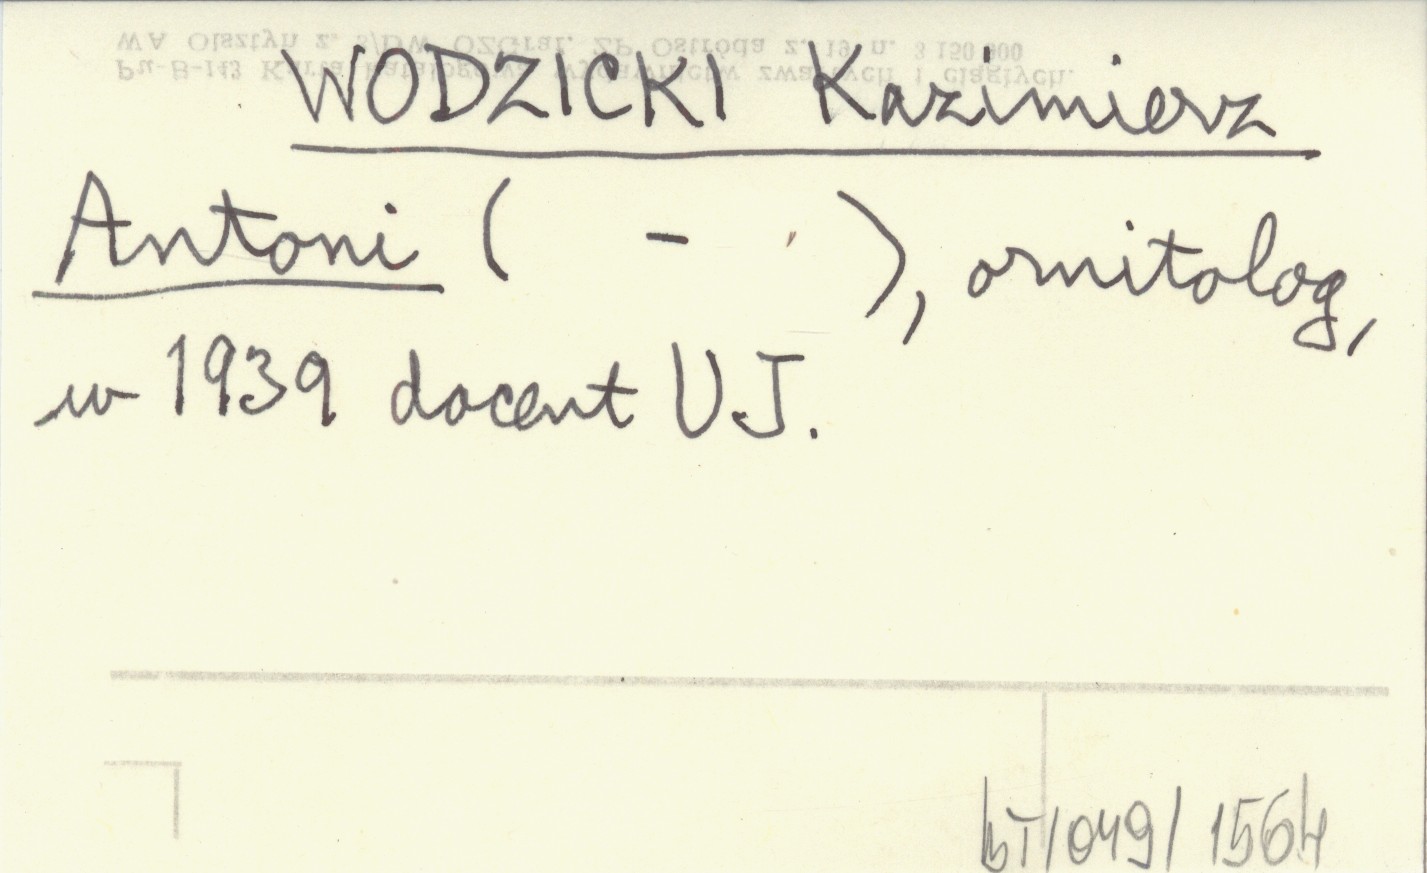 WA Olsztyn z. 3/DW OZGraf. ZP Ostróda z. 19 n. 3 150 000
Pu-B-143 Karta katalogowa wydawnictw zwartych i ciągłych.
WODZICKI Kazimierz
Antoni ( - ), ornitolog,
w 1939 docent UJ.
/049/ 1564